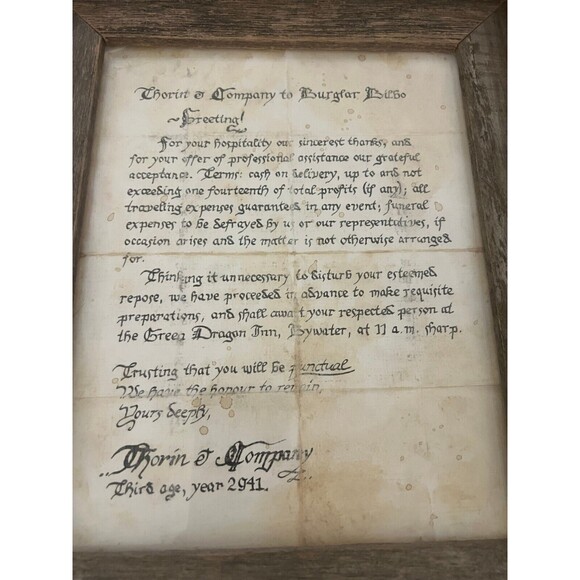 Thorin & Company to Burglar Bilbo
~Greeting!
For your hospitality our sincerest thanks, and
for your offer of professional assistance our grateful
acceptance. Terms: cash on delivery, up to and not
exceeding one fourteenth of total profits (if any); all
travelling expenses guaranteed in any event; funeral
expenses to be defrayed by us or our representatives, if
occasion arises and the matter is not otherwise arranged
for.
Thinking it unnecessary to disturb your esteemed
repose, we have proceeded in advance to make requisite
preparations, and shall await your respected person at
the Green Dragon Inn, Bywater, at 11 a.m. sharp.
Trusting that you will be punctual
We have the honour to remain,
Yours deeply,
Thorin & Company
Third age, year 2941.